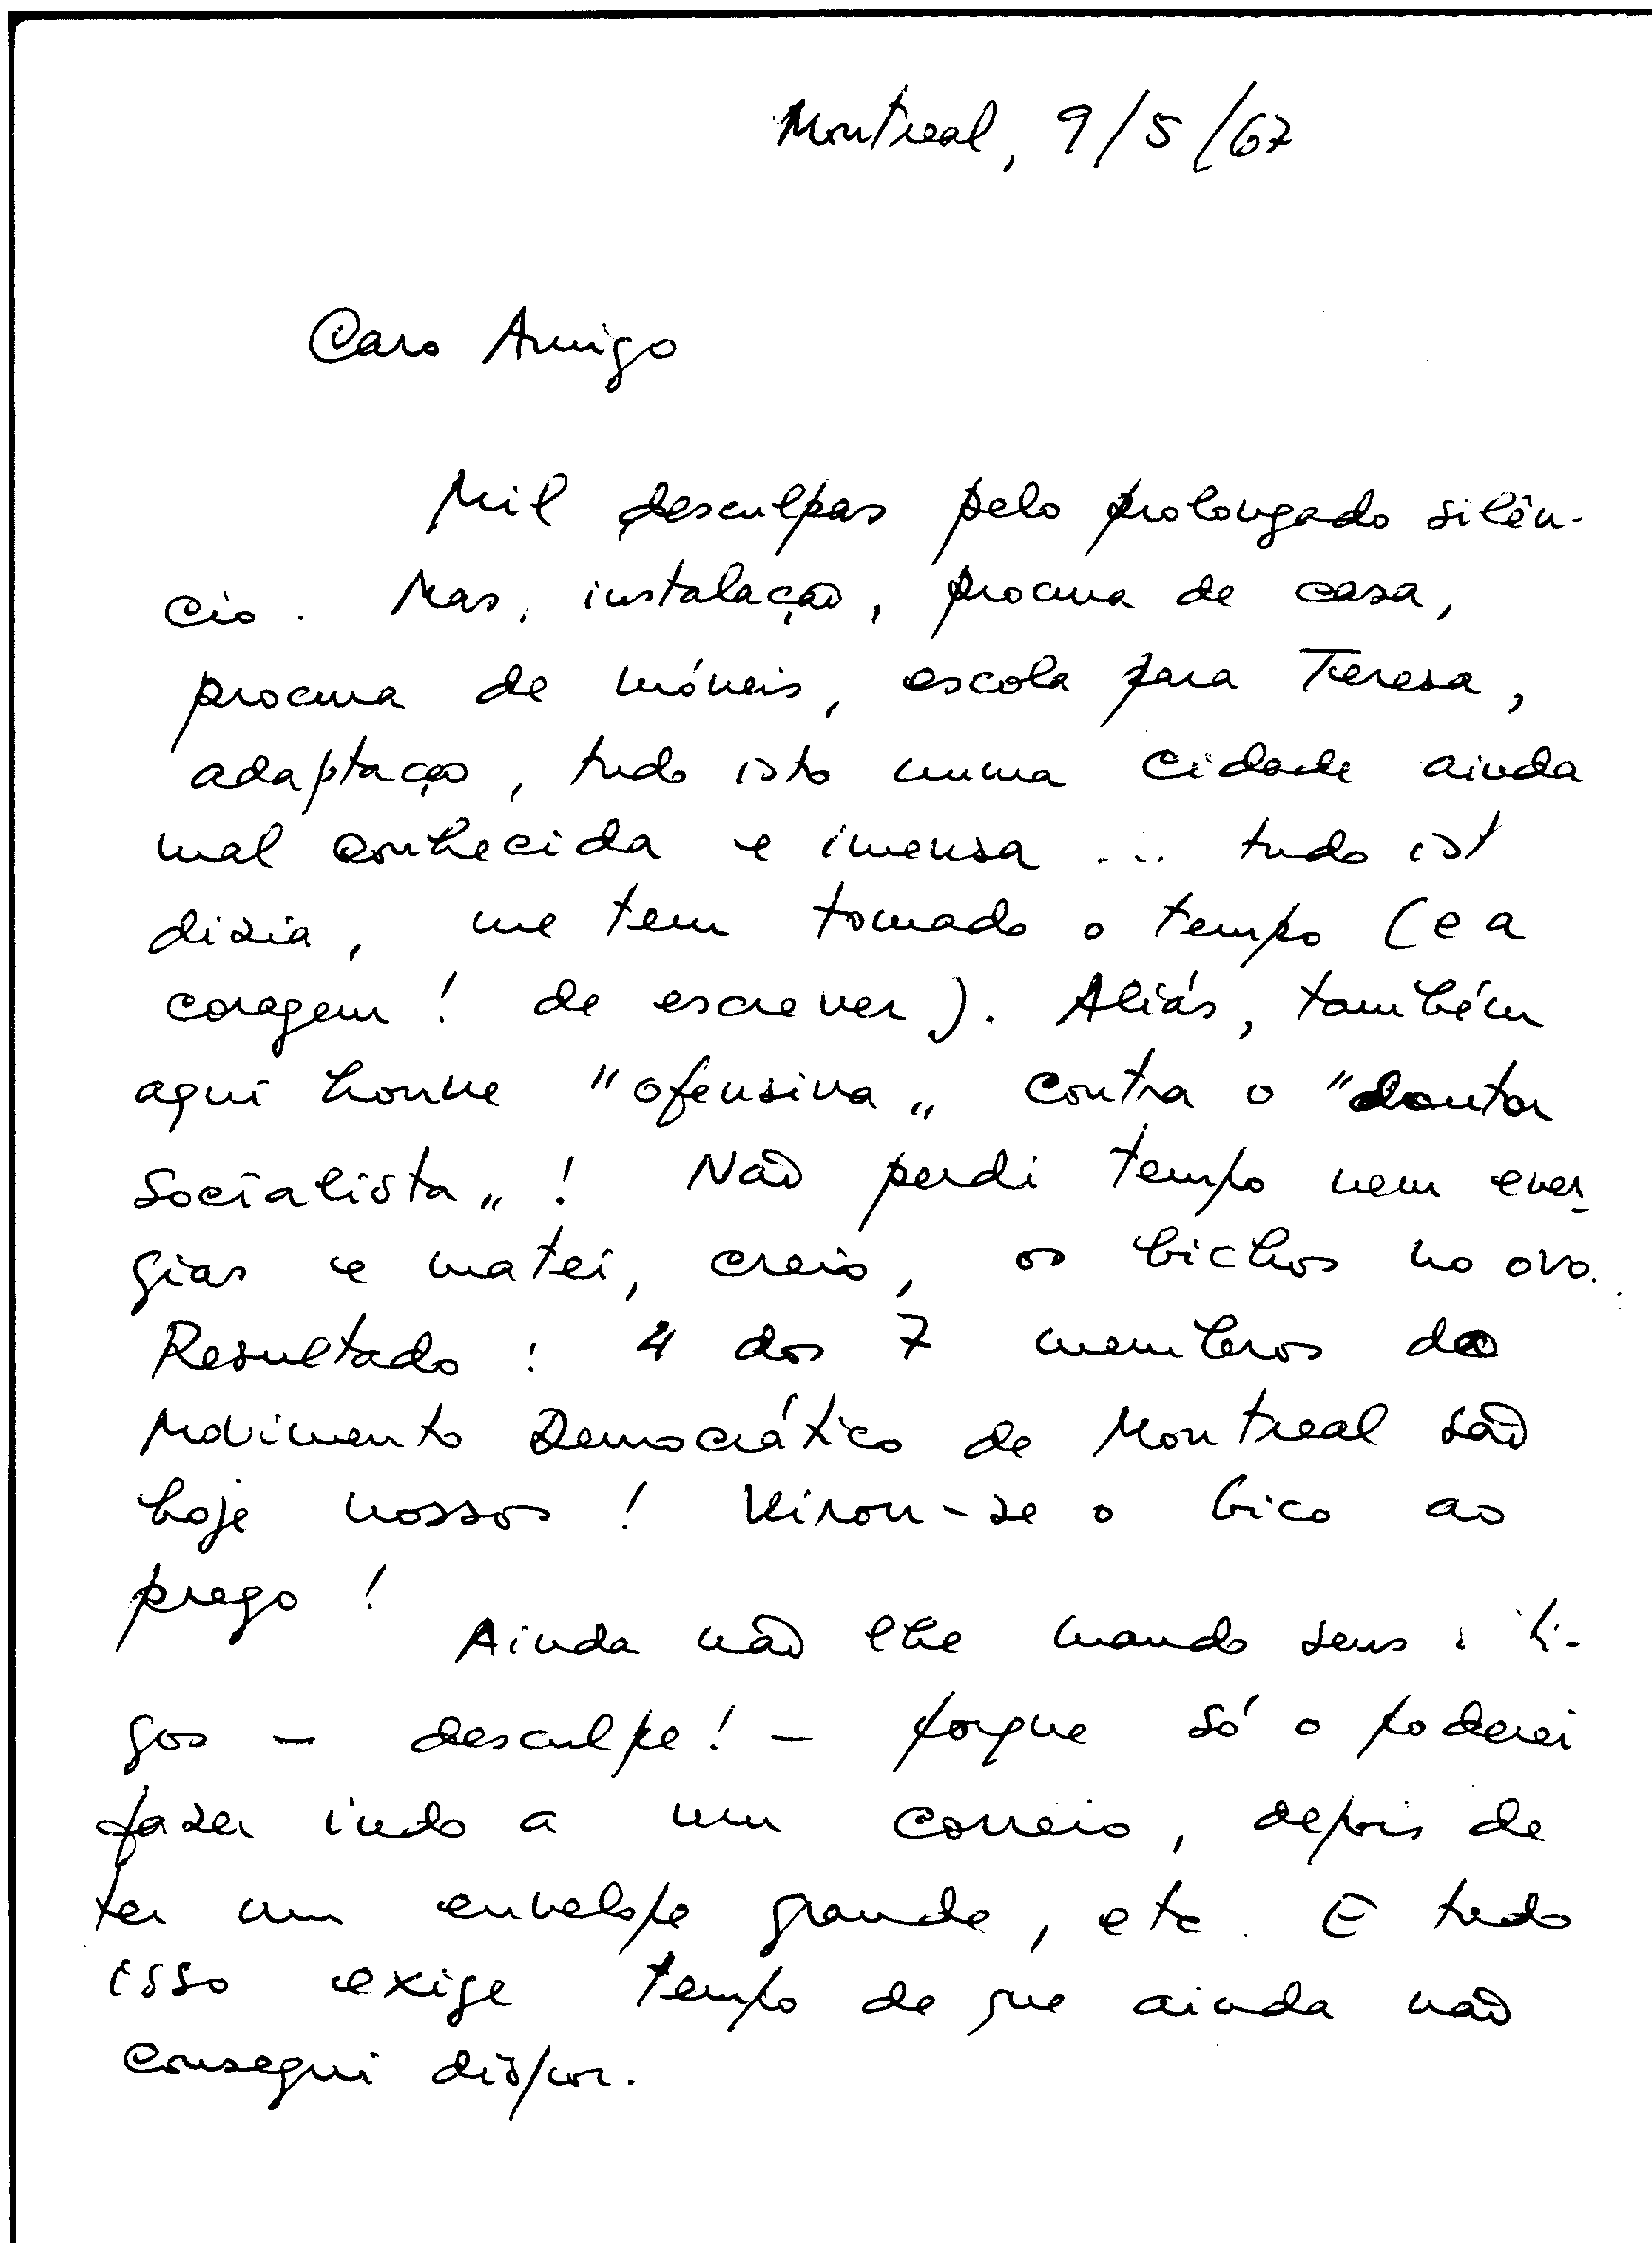 Montreal, 9/5/67
Caro Amigo
Mil desculpas pelo prolongado silên-
cio. Mas, instalação, procura de casa,
procura de móveis, escola para Teresa,
adaptação, tudo isto numa cidade ainda
mal conhecida e imensa ... tudo ist
dizia, me tem tomado o tempo (e a
coragem! de escrever). Aliás, também
aqui houve "ofensiva„ contra o "doutor
socialista„! Não perdi tempo nem ener-
gias e matei, creio, os bichos no ovo.
Resultado: 4 dos 7 membros do
Movimento Democrático de Montreal são
hoje nossos! Virou-se o bico ao
prego!
Ainda não lhe mando seus
gos - desculpe! - porque só o poderei
fazer indo a um correio, depois de
ter um envelope grande, etc. E tudo
isso exige tempo de que ainda não
consegui dispor.